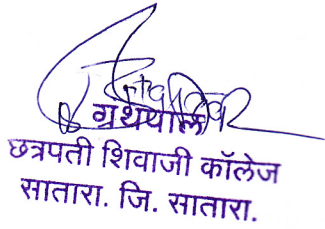 ग्रंथपाल
छत्रपती शिवाजी कॉलेज
सातारा. जि. सातारा.